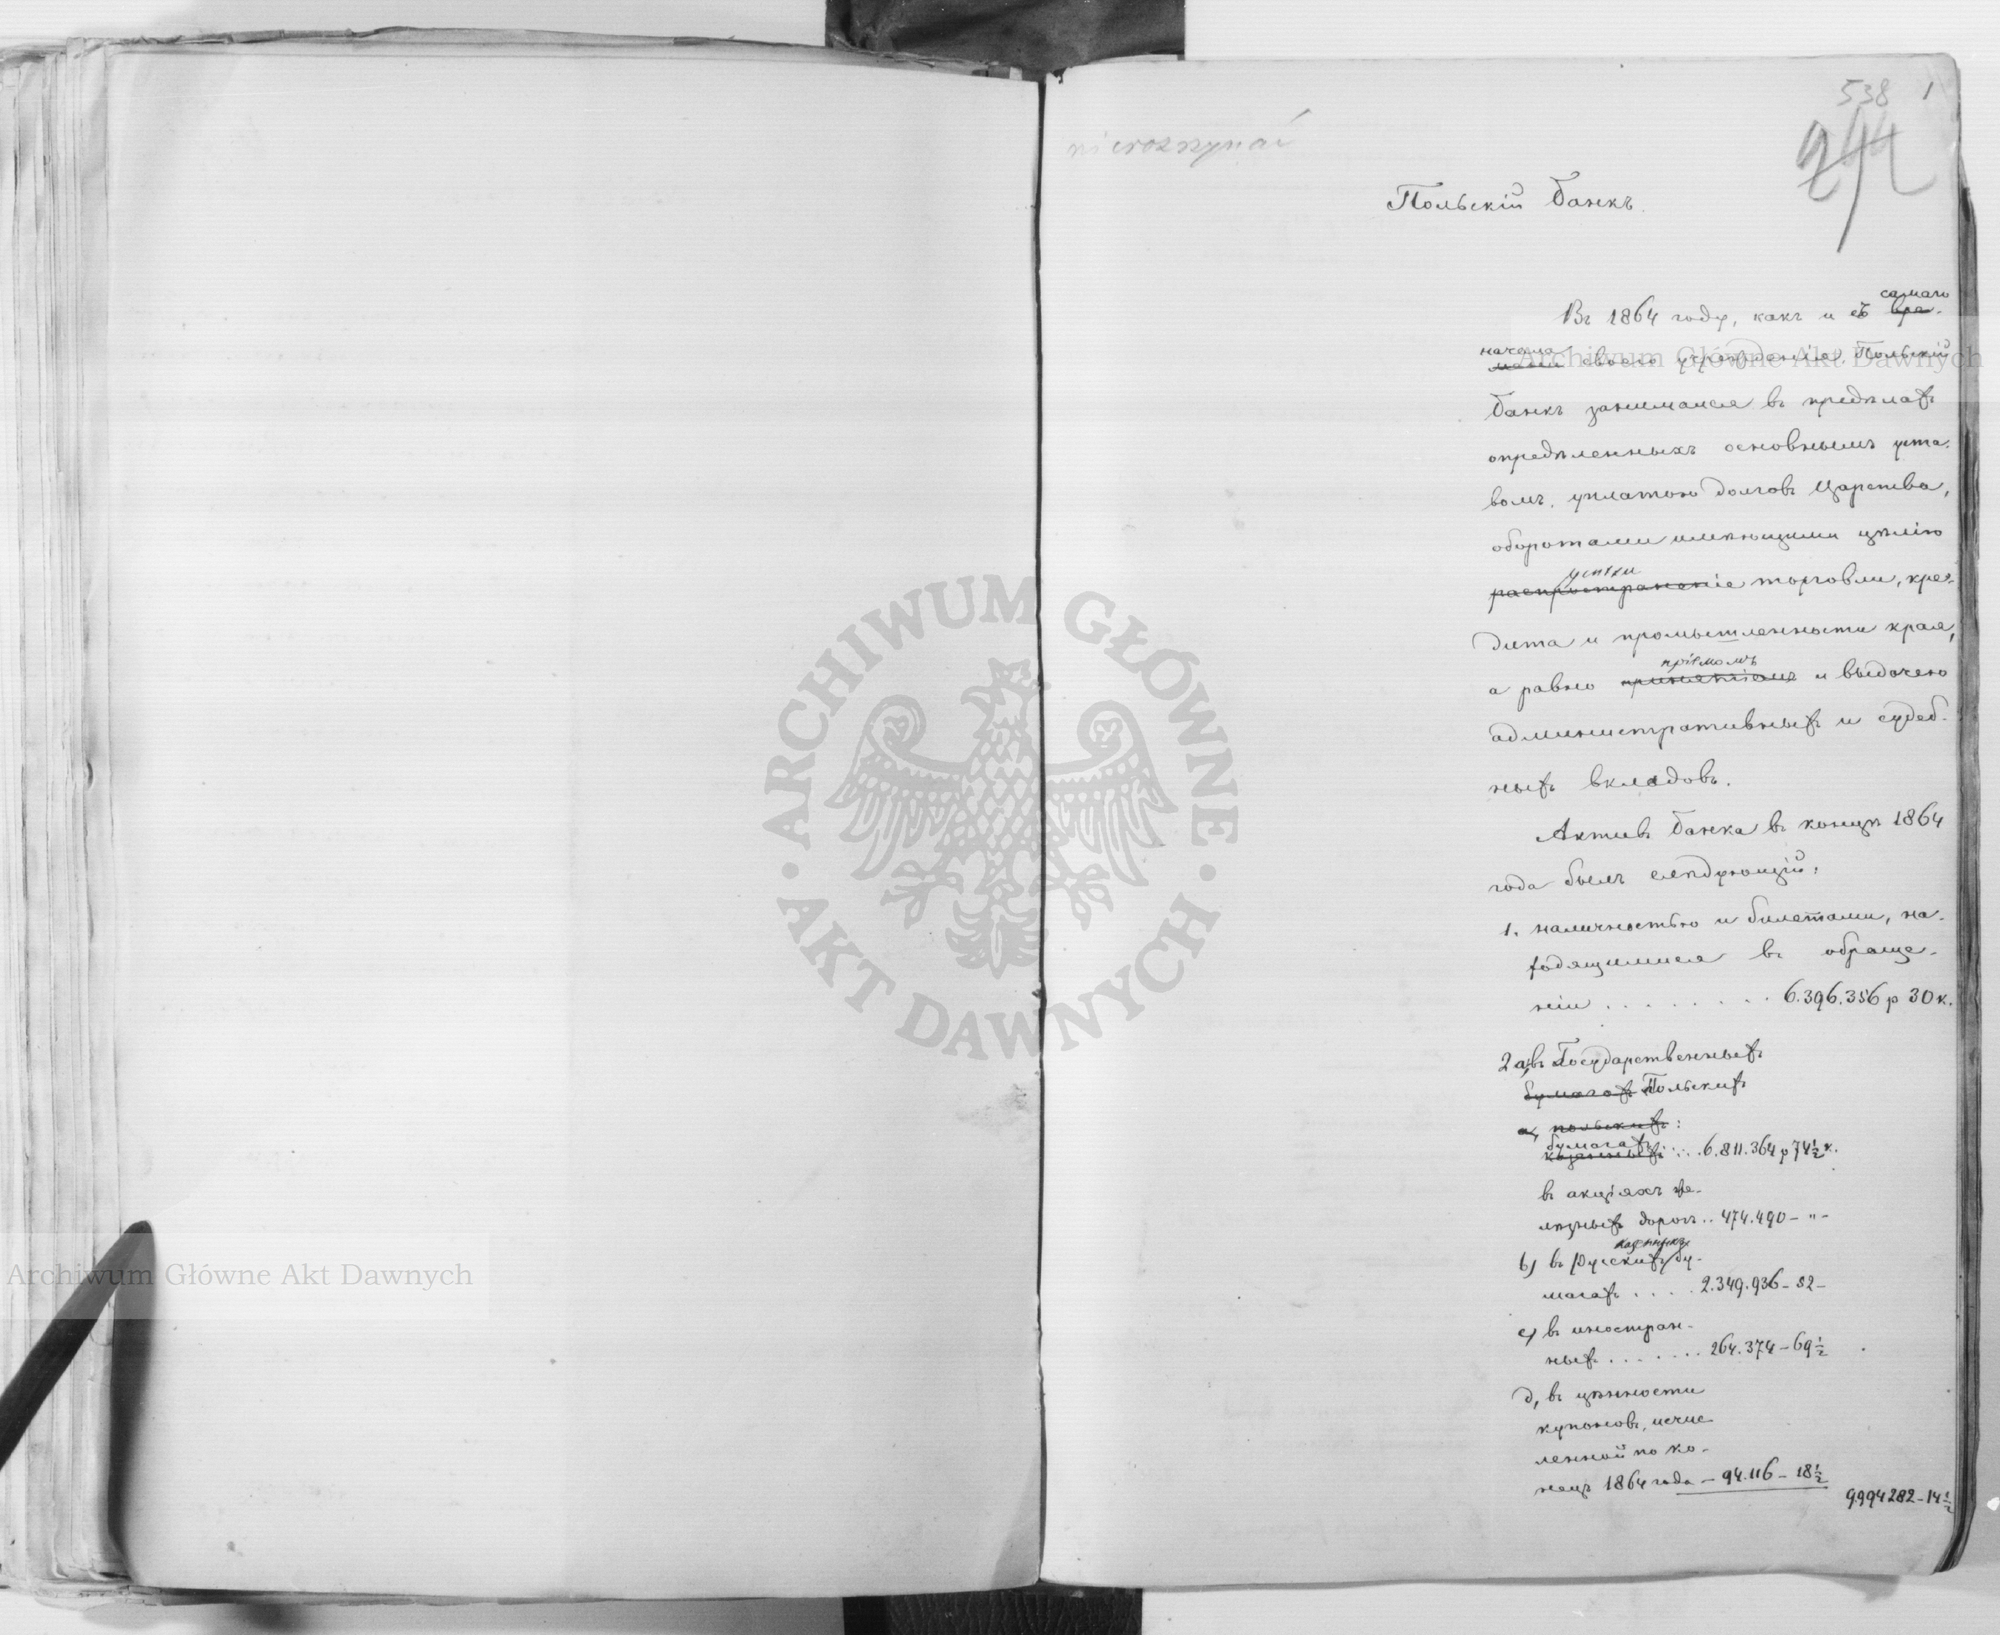 538 1
244
nierozszywać
Польскій Банкъ.
Въ 1864 году, какъ и съ самаго вре-
начала мени своего учрежденія, Польскій
Банкъ занимался въ предѣлахъ
опредѣленныхъ основнымъ уста-
вомъ, уплатою долговъ Царства,
оборотами имѣющими цѣлію
успѣхи
распространеніе торговли, кре-
дита и промышленности края,
пріемомъ
а равно принятіемъ и выдачею
административныхъ и судеб-
ныхъ вкладовъ.
Активъ Банка въ концѣ 1864
года былъ слѣдующій:
1. наличностью и билетами, на-
ходящимися въ обраще-
ніи . . . . . . . . 6.396.356 р 30 к.
2 а, въ Государственныхъ
бумагахъ Польскихъ
а, польскихъ:
бумагахъ
казенныхъ . . . . 6.811.364 р 74½ к.
въ акціяхъ же-
лѣзныхъ дорогъ .. 474.490 – " –
казенныхъ
b) въ Русскихъ бу-
магахъ . . . . 2.349.936 – 52 –
c) въ иностран-
ныхъ . . . . . . . 264.374 – 69½
d, въ цѣнности
купоновъ, исчис
ленной по ко-
нецъ 1864 года – 94.116 – 18½
9994282 – 14½
ARCHIWUM GŁÓWNE
· AKT DAWNYCH ·
Archiwum Główne Akt Dawnych
Archiwum Główne Akt Dawnych